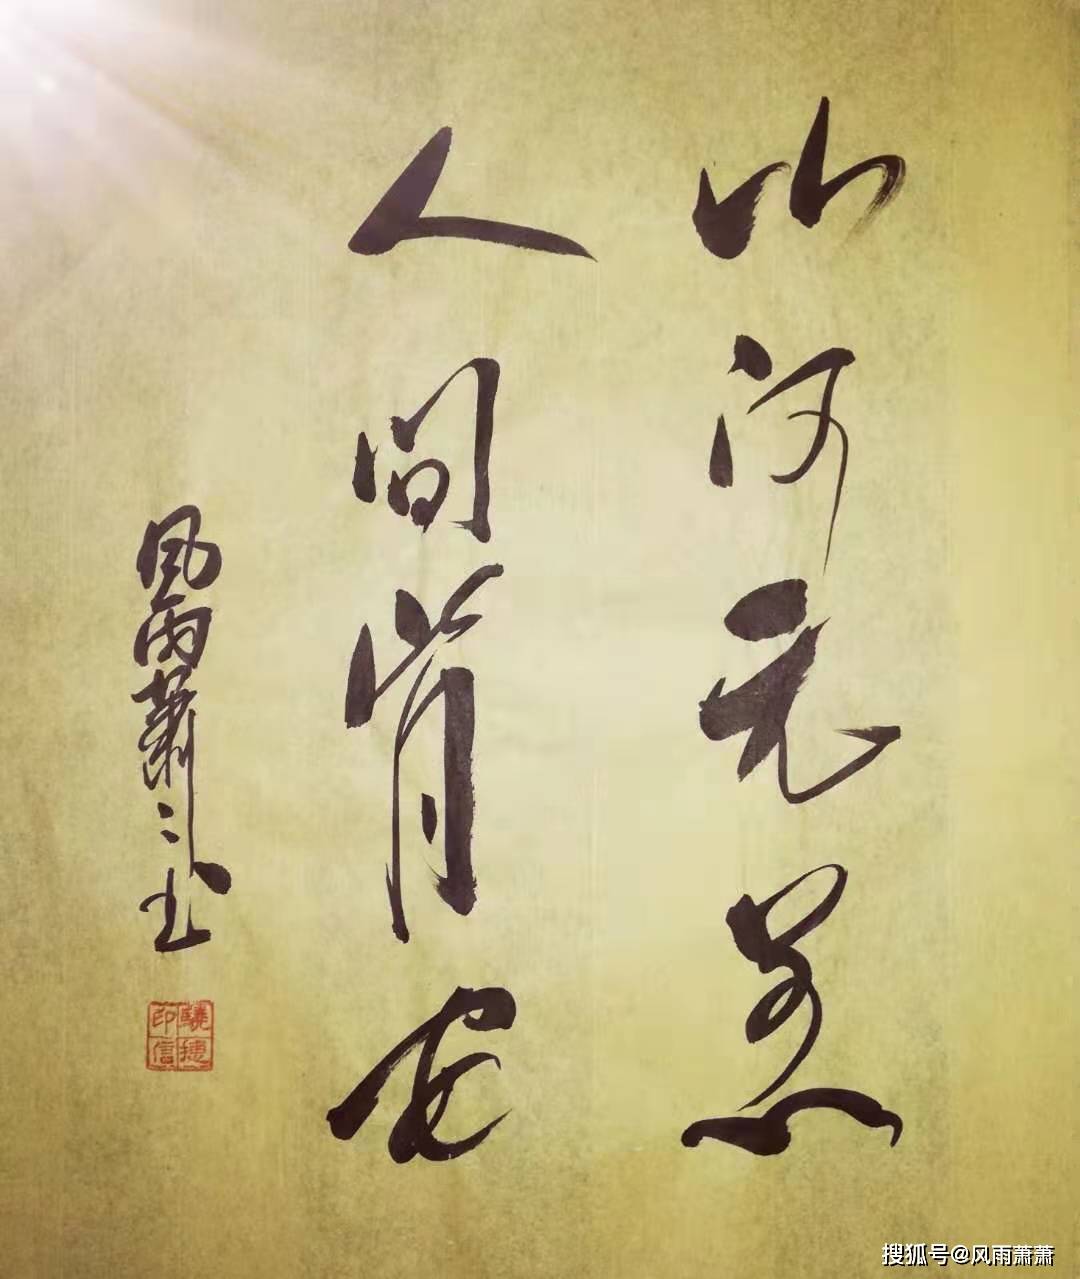 山河无恙
人间皆安
风雨萧〻书
印信
搜狐号@风雨萧萧